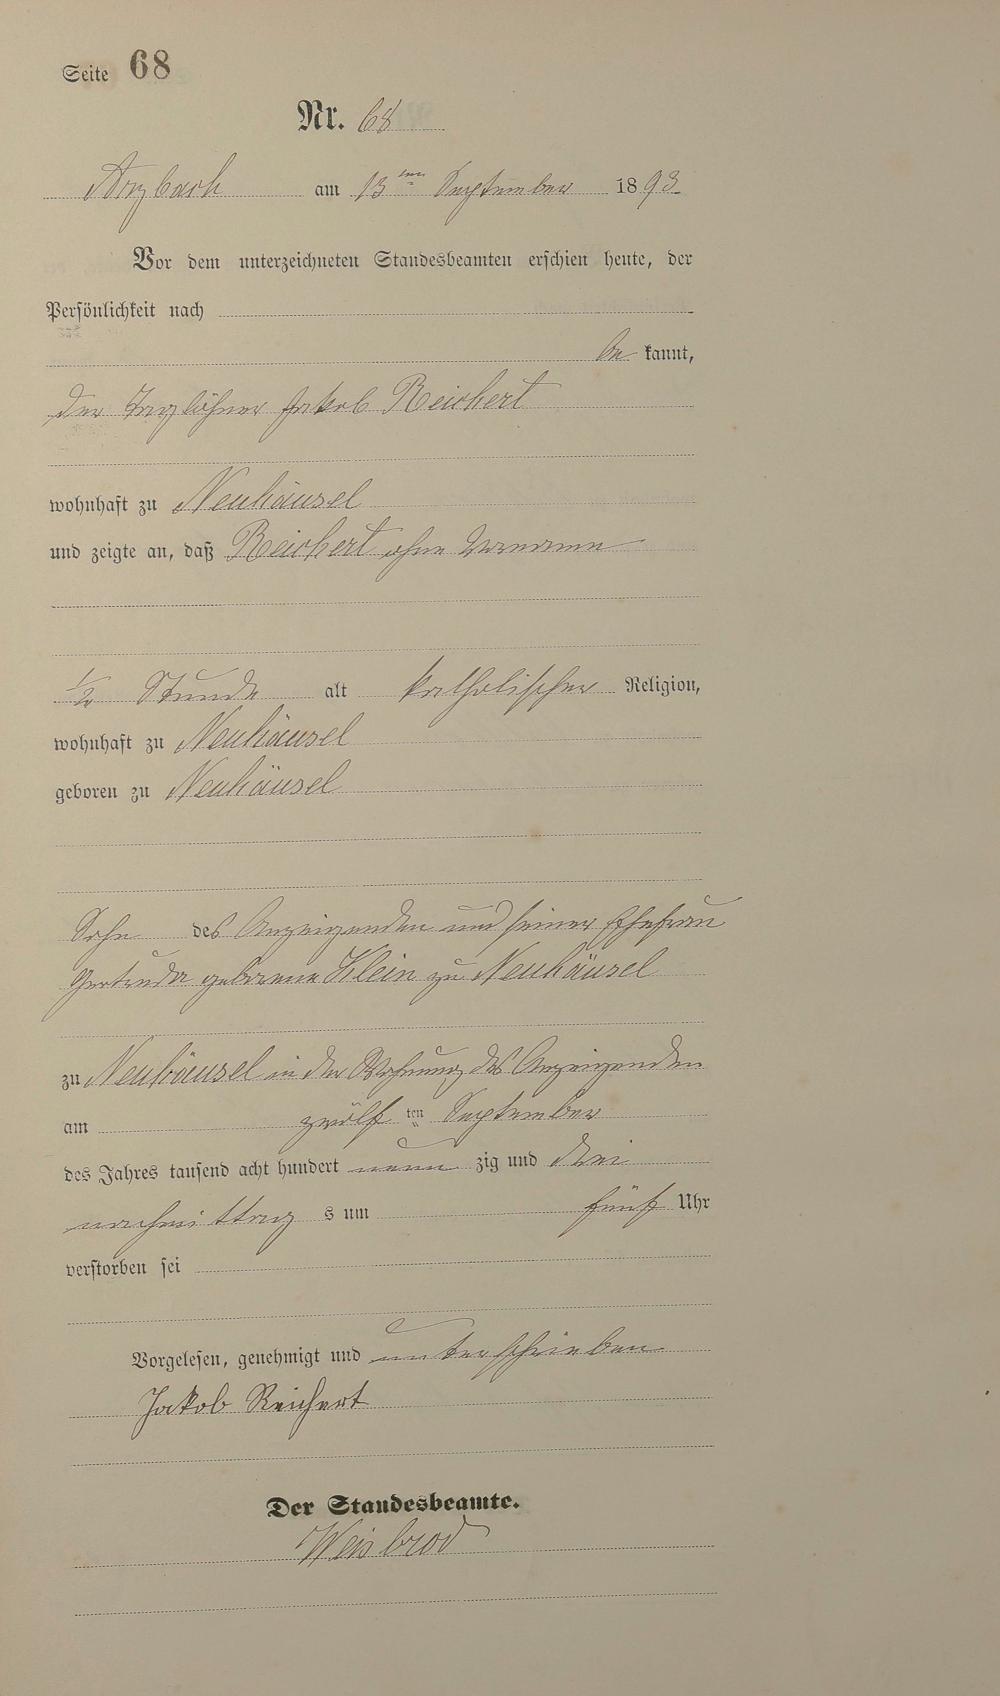 Seite 68
Nr. 68
Arzbach am 13ten September 1893
Vor dem unterzeichneten Standesbeamten erschien heute, der
Persönlichkeit nach
bekannt,
der Taglöhner Jakob Reichert
wohnhaft zu Neuhäusel
und zeigte an, daß Reichert ohne Vorname
1/2 Stunde alt katholischer Religion,
wohnhaft zu Neuhäusel
geboren zu Neuhäusel
Sohn des Anzeigenden und seiner Ehefrau
Gertruda geborene Klein zu Neuhäusel
zu Neuhäusel in der Wohnung des Anzeigenden
am zwölften September
des Jahres tausend acht hundert neunzig und drei
nachmittags um fünf Uhr
verstorben sei
Vorgelesen, genehmigt und unterschrieben
Jakob Reichert
Der Standesbeamte.
Weisbrod